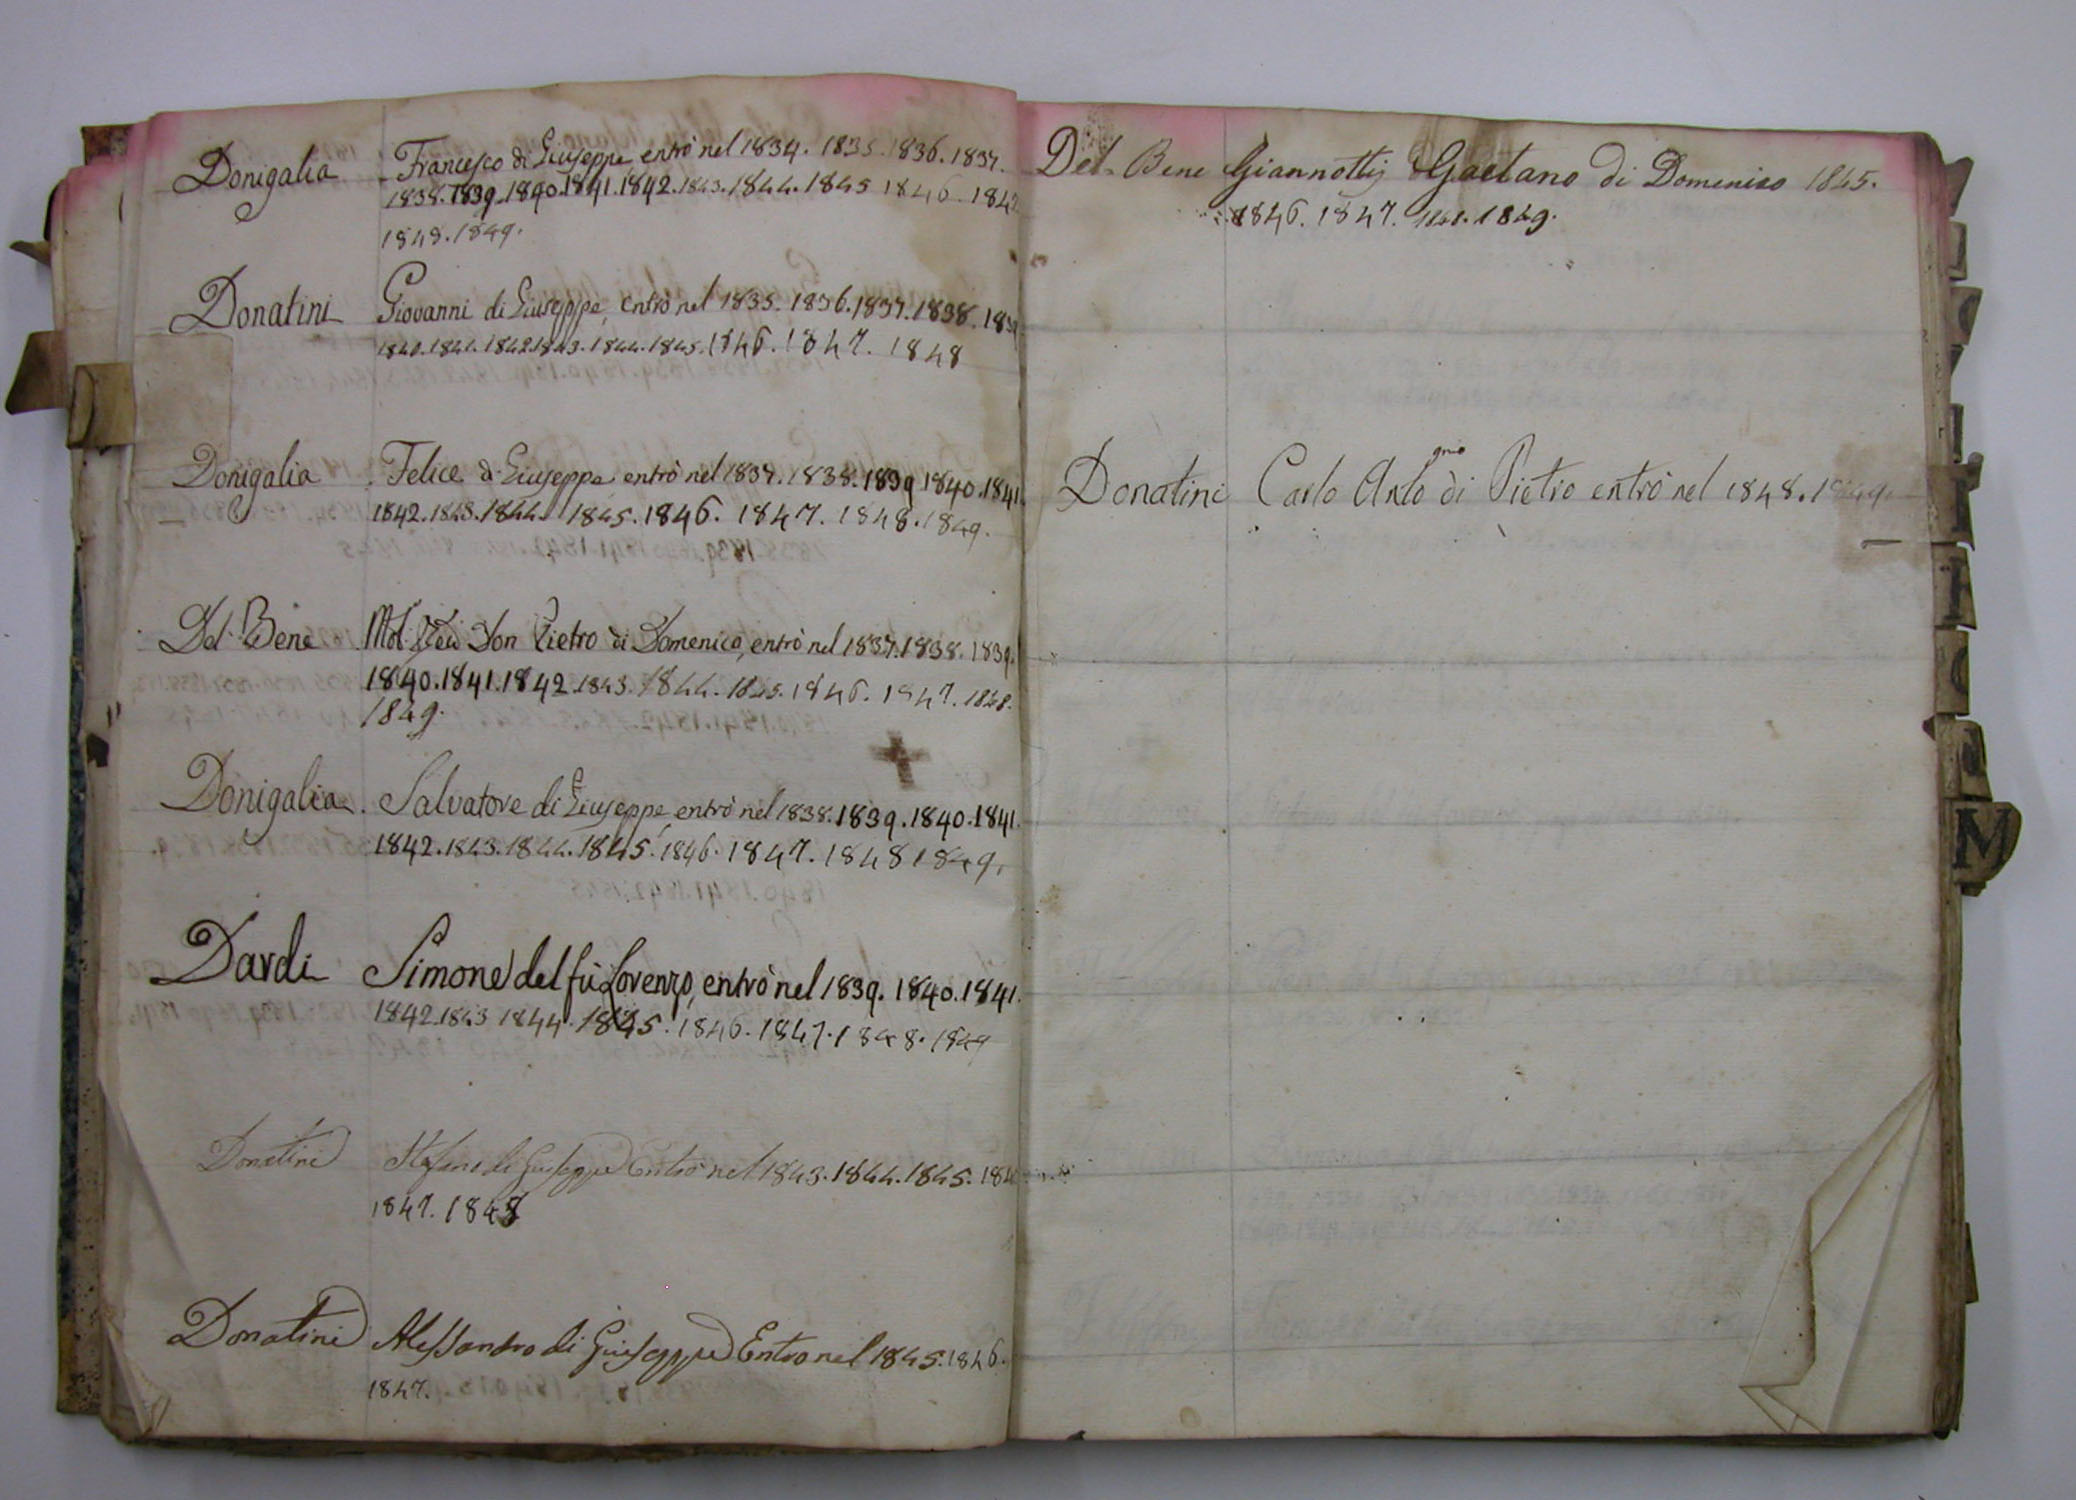 Donigalia Francesco di Giuseppe entrò nel 1834. 1835. 1836. 1837.
1838. 1839. 1840. 1841. 1842. 1843. 1844. 1845 1846. 1847
1848. 1849.
Donatini Giovanni di Giuseppe, entrò nel 1835. 1836. 1837. 1838. 1839
1840. 1841. 1842. 1843. 1844. 1845. 1846. 1847. 1848
Donigalia Felice di Giuseppe entrò nel 1837. 1838. 1839 1840. 1841.
1842. 1843. 1844. 1845. 1846. 1847. 1848. 1849.
Del Bene Mol: Don Pietro di Domenico, entrò nel 1837. 1838. 1839.
1840. 1841. 1842. 1843. 1844. 1845. 1846. 1847. 1848.
1849.
Donigalia. Salvatore di Giuseppe, entrò nel 1838. 1839. 1840. 1841.
1842. 1843. 1844. 1845. 1846. 1847. 1848 1849.
Dardi Simone del fù Lorenzo, entrò nel 1839. 1840. 1841.
1842. 1843 1844. 1845. 1846. 1847. 1848. 1849
Donatini Stefano di Giuseppe Entrò nel 1843. 1844. 1845. 1846
1847. 1848
Donatini Alessandro di Giuseppe Entro nel 1845. 1846.
1847.
Del Bene Giannotti Gaetano di Domenico 1845.
1846. 1847. 1848. 1849.
Donatini Carlo Anto gnio di Pietro entrò nel 1848. 1849.
M